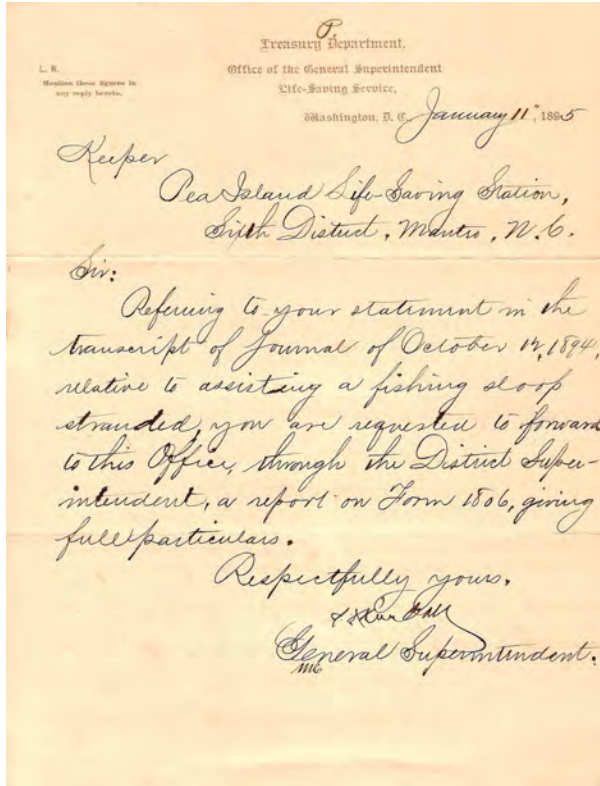 P.
Treasury Department,
Office of the General Superintendent
Life-Saving Service,
L. R.
Mention these figures in
any reply hereto.
Washington, D. C. January 11", 1895
Keeper
Pea Island Life-Saving Station,
Sixth District, Manteo, N. C.
Sir:
Referring to your statement in the
transcript of journal of October 12, 1894,
relative to assisting a fishing sloop
stranded, you are requested to forward
to this Office, through the District Super-
intendent, a report on Form 1806, giving
full particulars.
Respectfully yours,
General Superintendent.